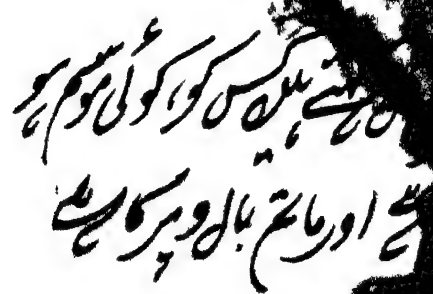 کہتے ہیں کس کو، کوئی موسم ہو
ہے اور ماتم بال و پر کا ہے